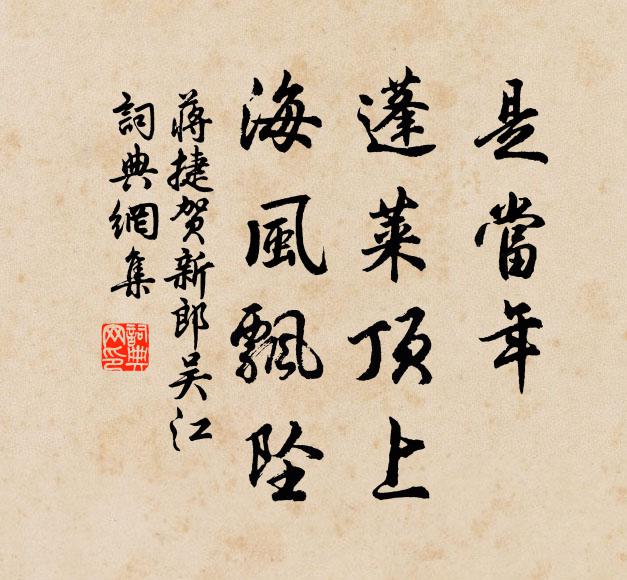 是當年
蓬萊頂上
海風飄墜
蔣捷賀新郎吴江
詞典網集
詞典
网印